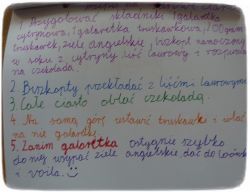 1. Przygotować składniki 1 galaretka
cytrynowa, 1 galaretka truskawkowa, 10 gram
truskawek, ziele angielskie, biszkopt namoczony
w soku z cytryny, liść laurowy i rozpusz
na czekolada
2. Biszkopty przekładać z liśćmi laurowymi
3. Całe ciasto oblać czekoladą.
4. Na samą górę ustawić truskawki i wlać
na nie galaretkę
5. Zanim galaretka ostygnie szybko
do niej wsypać ziele angielskie dać do lodówki
i voila.